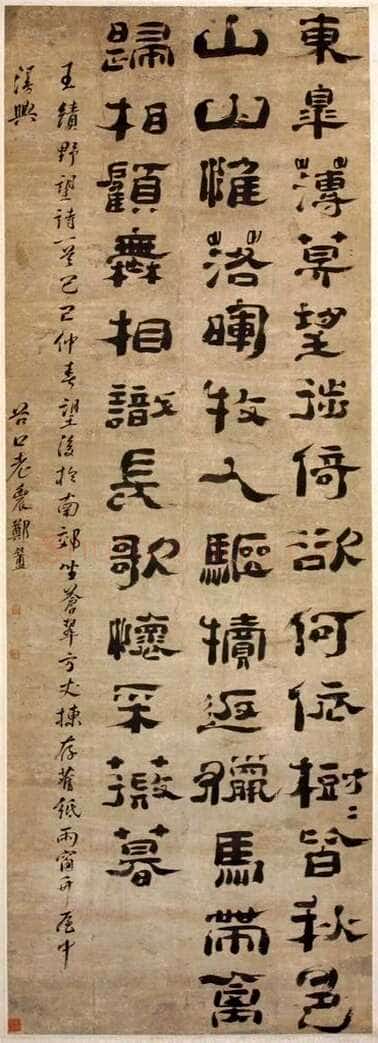 東皋薄莫望徙倚欲何依樹二皆秋色
山山惟落暉牧人驅犢返獵馬帶禽
歸相顧無相識長歌懷采薇暮
王績野望詩一首己巳仲春望後於南郊坐蒼翠方丈揀存舊紙雨窗中
漫興 谷口老農鄭簠